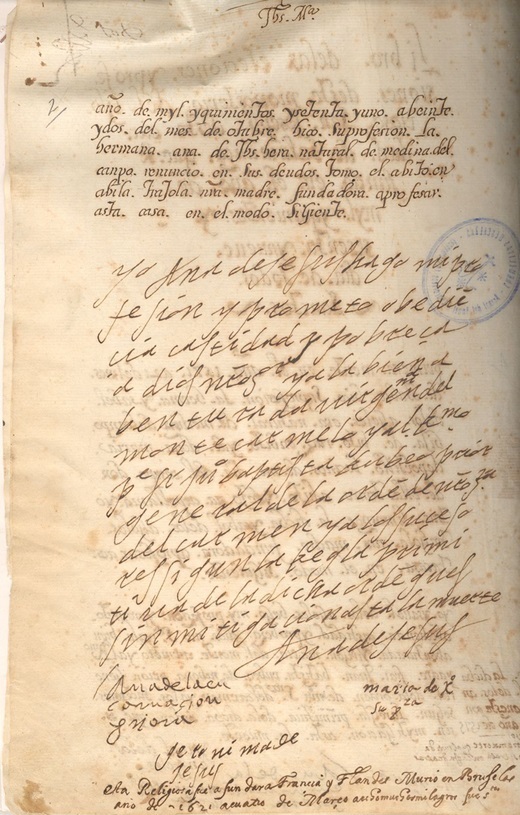 Jhs. Mª
2
año. de. myl. yquinientos. ysetenta. yuno. abeinte.
ydos. del. mes. de. otubre. hiço. suprofesion. La.
hermana. ana. de. Jhs. hera. natural. de. medina. del.
canpo. renuncio. en. sus. deudos. tomo. el. abito. en
abila. trajola. nra. madre. fundadora. aprofesar.
asta. casa. en. el. modo. siguiente.
yo Ana de jesus hago mi pro
fesion y prometo obedie
cia castidad y pobreça
a dios nro sr y a la biena
benturada virgen mª del
monte carmelo y al Rmo
pe
general de la orde de nra sra
del carmen y a sus suceso
res sigun la Regla primi
tiva de la dicha orde ques
sin mitigacion asta la muerte
Ana de jesus
Ana de la en
carnaçion
priora
maria de xº
su pra
Jeronima de
Jesus
sta Religiosa fue a fundar a Francia y Flandes Murio en Bruselas
año de 1621 a cuatro de Março